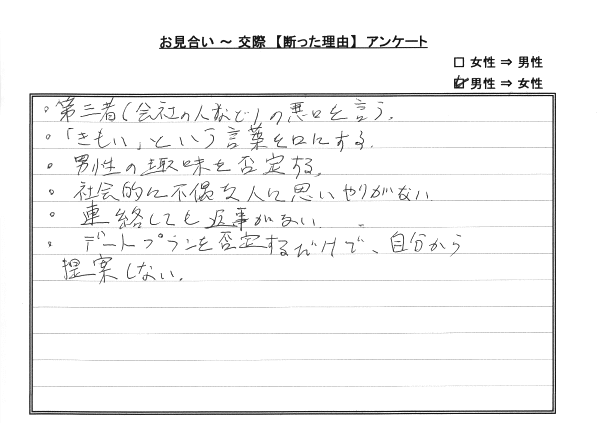 お見合い ～ 交際 【断った理由】 アンケート
□ 女性 ⇒ 男性
☑ 男性 ⇒ 女性
・第三者(会社の人など)の悪口を言う。
・「きもい」という言葉を口にする。
・男性の趣味を否定する。
・社会的に不偶な人に思いやりがない
・連絡しても返事がない。
・デートプランを否定するだけで、自分から
提案しない。